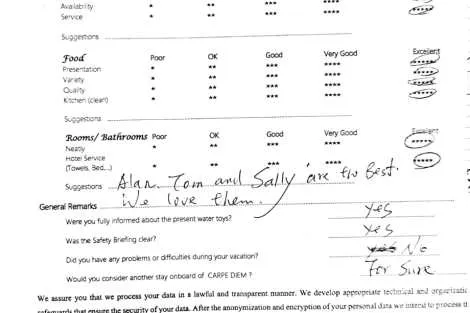 Availability * ** *** ****
Service * ** *** **** *****
Suggestions
Food Poor OK Good Very Good Excellent
Presentation * ** *** **** *****
Variety * ** *** **** *****
Quality * ** *** **** *****
Kitchen (clean) * ** *** **** *****
Suggestions
Rooms/ Bathrooms Poor OK Good Very Good Excellent
Neatly * ** *** **** *****
Hotel Service
(Towels, Bed,...) * ** *** **** *****
Suggestions Alan. Tom and Sally are the Best.
We love them.
General Remarks
Were you fully informed about the present water toys? yes
Was the Safety Briefing clear? yes
Did you have any problems or difficulties during your vacation? No
Would you consider another stay onboard of CARPE DIEM ? For Sure
We assure you that we process your data in a lawful and transparent manner. We develop appropriate technical and
safeguards that ensure the security of your data. After the anonymization and encryption of your personal data we intend to process